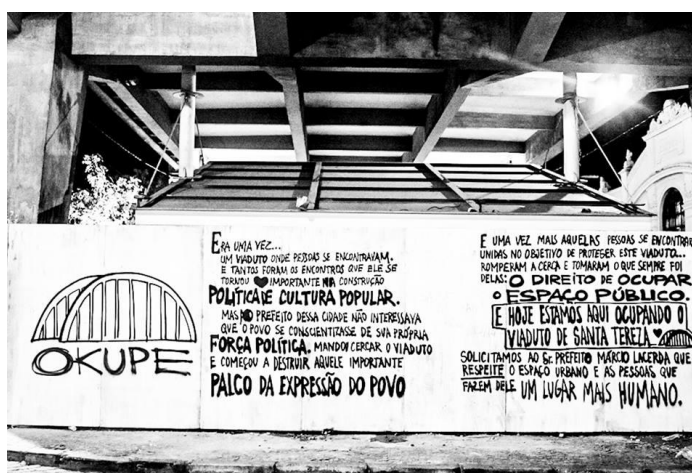 OKUPE
ERA UMA VEZ...
UM VIADUTO ONDE PESSOAS SE ENCONTRAVAM.
E TANTOS FORAM OS ENCONTROS QUE ELE SE
TORNOU IMPORTANTE NA CONSTRUÇÃO
POLÍTICA E DE CULTURA POPULAR.
MAS AO PREFEITO DESSA CIDADE NÃO INTERESSAVA
QUE O POVO SE CONSCIENTIZASSE DE SUA PRÓPRIA
FORÇA POLÍTICA. MANDOU CERCAR O VIADUTO
E COMEÇOU A DESTRUIR AQUELE IMPORTANTE
PALCO DA EXPRESSÃO DO POVO
E UMA VEZ MAIS AQUELAS PESSOAS SE ENCONTRAR
UNIDAS NO OBJETIVO DE PROTEGER ESTE VIADUTO...
ROMPERAM A CERCA E TOMARAM O QUE SEMPRE FOI
DELAS: O DIREITO DE OCUPAR
O ESPAÇO PÚBLICO.
E HOJE ESTAMOS AQUI OCUPANDO O
VIADUTO DE SANTA TEREZA
SOLICITAMOS AO Sr. PREFEITO MÁRCIO LACERDA QUE
RESPEITE O ESPAÇO URBANO E AS PESSOAS QUE
FAZEM DELE UM LUGAR MAIS HUMANO.